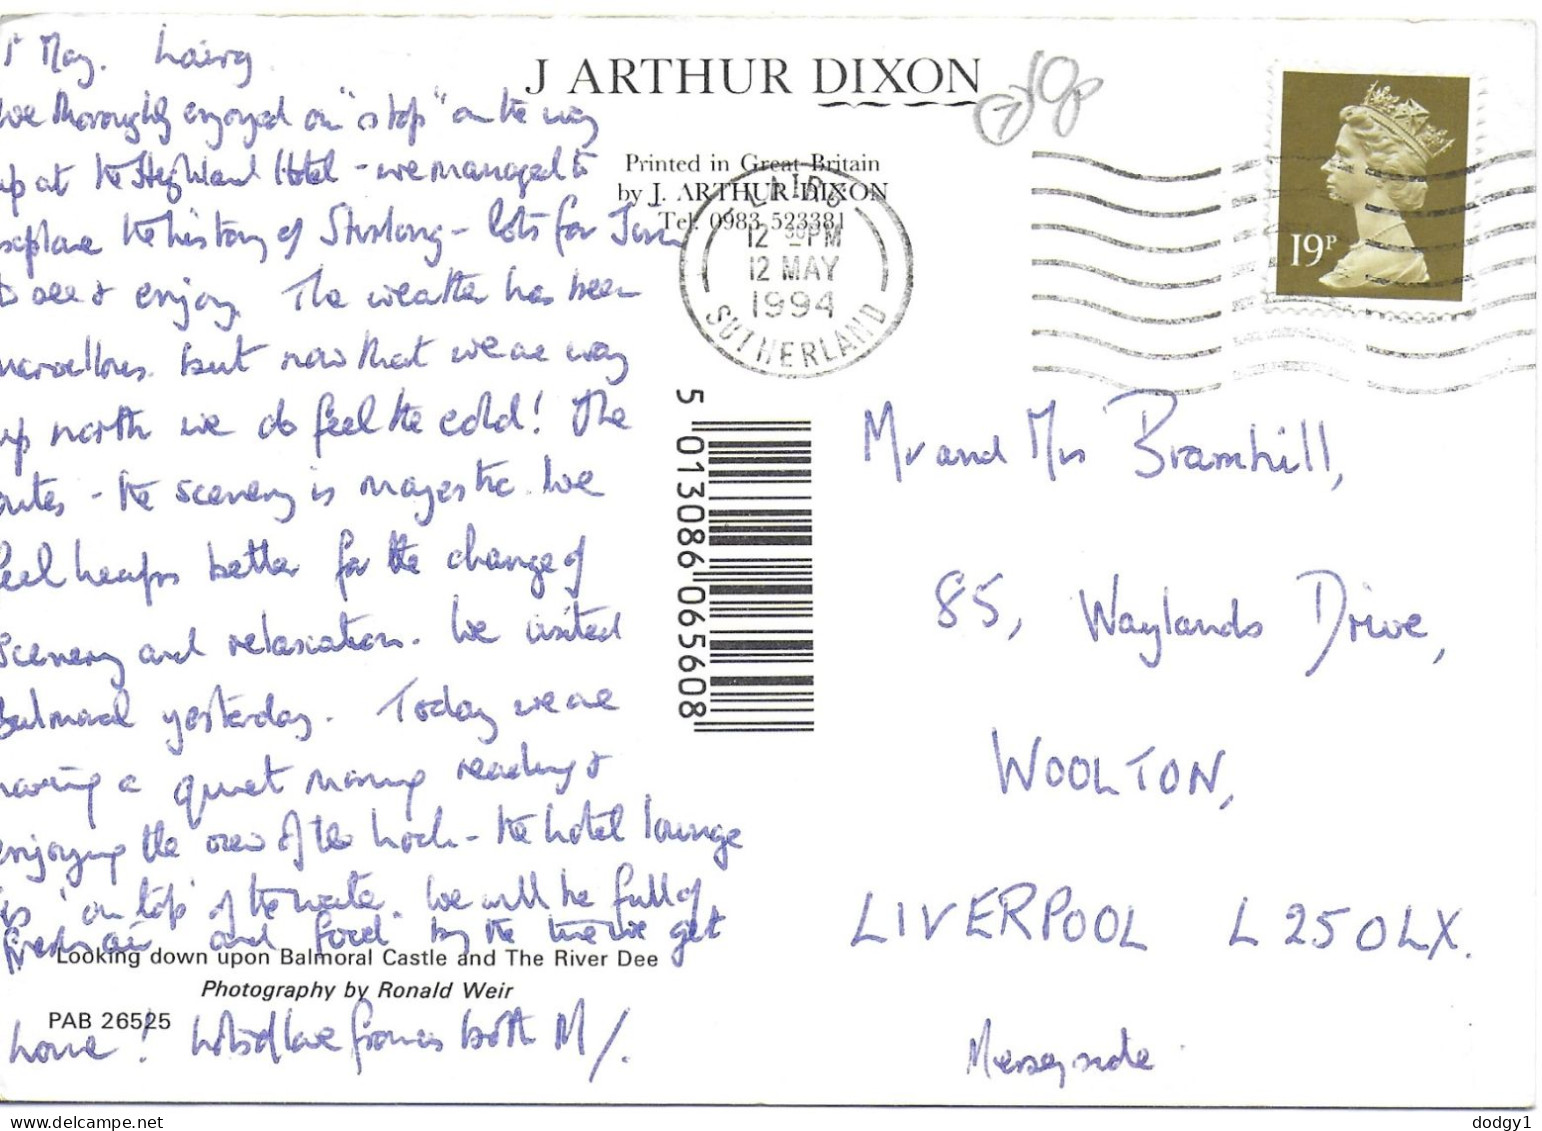 May. Lairg
We thoroughly enjoyed our "stop" on the way
up at the Highland Hotel - we managed to
explore the history of Stirling - lots for
to see & enjoy. The weather has been
marvellous but now that we are way
up north we do feel the cold! The
routes - the scenery is majestic. We
feel heaps better for the change of
scenery and relaxation. We visited
Balmoral yesterday. Today we are
having a quiet morning reading &
enjoying the view of the Loch - the hotel lounge
is 'on top' of the water. We will be full of
fresh air and food by the time we get
home! Lots of love from us both M/.
Looking down upon Balmoral Castle and The River Dee
Photography by Ronald Weir
PAB 26525
J ARTHUR DIXON
Printed in Great Britain
by J. ARTHUR DIXON
Tel: 0983 523381
50p
LAIRG
12 30PM
12 MAY
1994
SUTHERLAND
19P
5 013086 065608
Mr and Mrs Bramhill,
85, Waylands Drive,
WOOLTON,
LIVERPOOL L25 0LX.
Merseyside
dodgy1